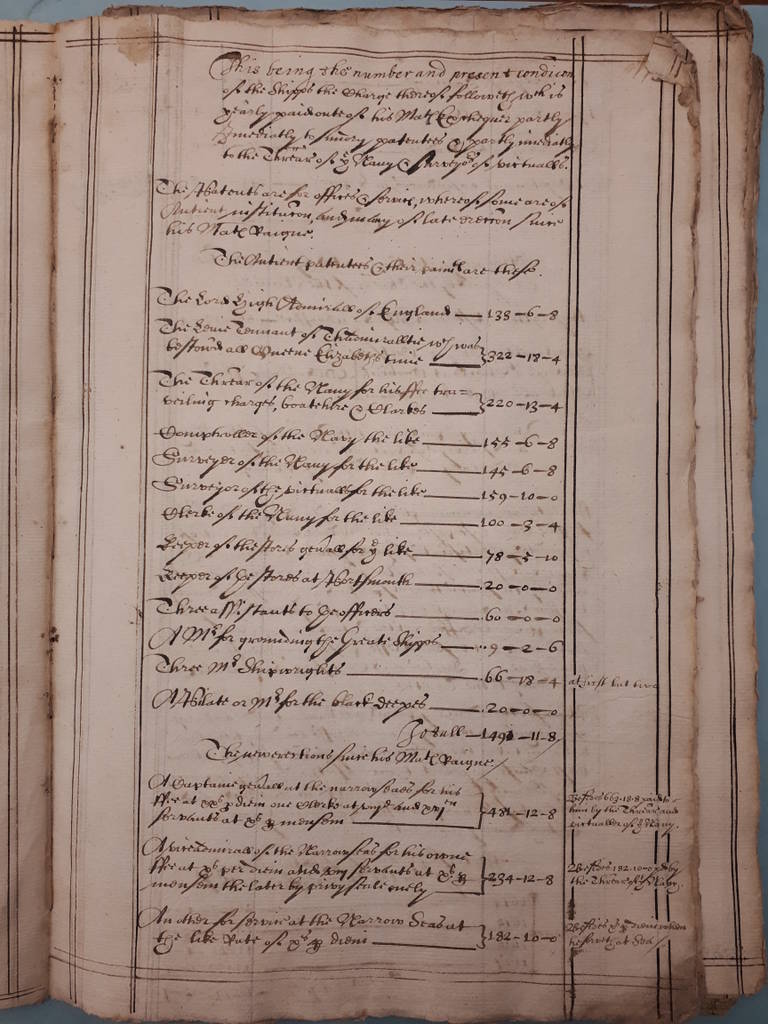 This being the number and present condicon
of the Shipps the Charge thereof followeth wch is
yearly paid oute of his Mats Exchequer partly
Imediatly to sundry patentees & partly imediatly
to the Threār of ye Navy & Surveyor of victualls.
The Patents are for offices & service, whereof some are of
Antient institucon, and many of late erection since
his Mats Raigne.
The Antient patentees & their paiments are these.
The Lord High Admirall of England — 133–6–8
The Leiuetennant of Thadmiraltie wch was
bestowed all Queene Elizabeths time — 322–18–4
The Threār of the Navy for his ffee tra=
veiling charges, boatehire & Clarkes — 220–13–4
Comptroller of the Navy the like — 155–6–8
Surveyor of the Navy for the like — 145–6–8
Surveyor of the victualls for the like — 159–10–0
Clerke of the Navy for the like — 100–3–4
Keeper of the stores genall for ye like — 78–5–10
Keeper of ye stores at Portsmouth — 20–0–0
Three assistants to ye officers — 60–0–0
A Mr for grounding the Greate Shipps — 9–2–6
Three Mr Shipwrights — 66–18–4 at first but two
A Pilate or Mr for the black deepes — 20–0–0
In all — 1491–11–8
The new erections since his Mats Raigne
A Captaine genall at the narrow seas for his
ffee at xxs p diem one Clerke at and
servants at xs p mensem — 481–12–8
Besides 663-18-8 paid to
him by the Threār and
victualler of ye Navy.
A vice admirall of the Narrow seas for his owne
ffee at xs per diem and servants at xs p
mensem the later by privy seale onely — 234–12–8
Besides 182-10-0 pd by
the Threār of ye Navy.
An other for service at the Narrow Seas at
the like Rate of xs p diem — 182–10–0
Besides p diem when
he serveth at Sea